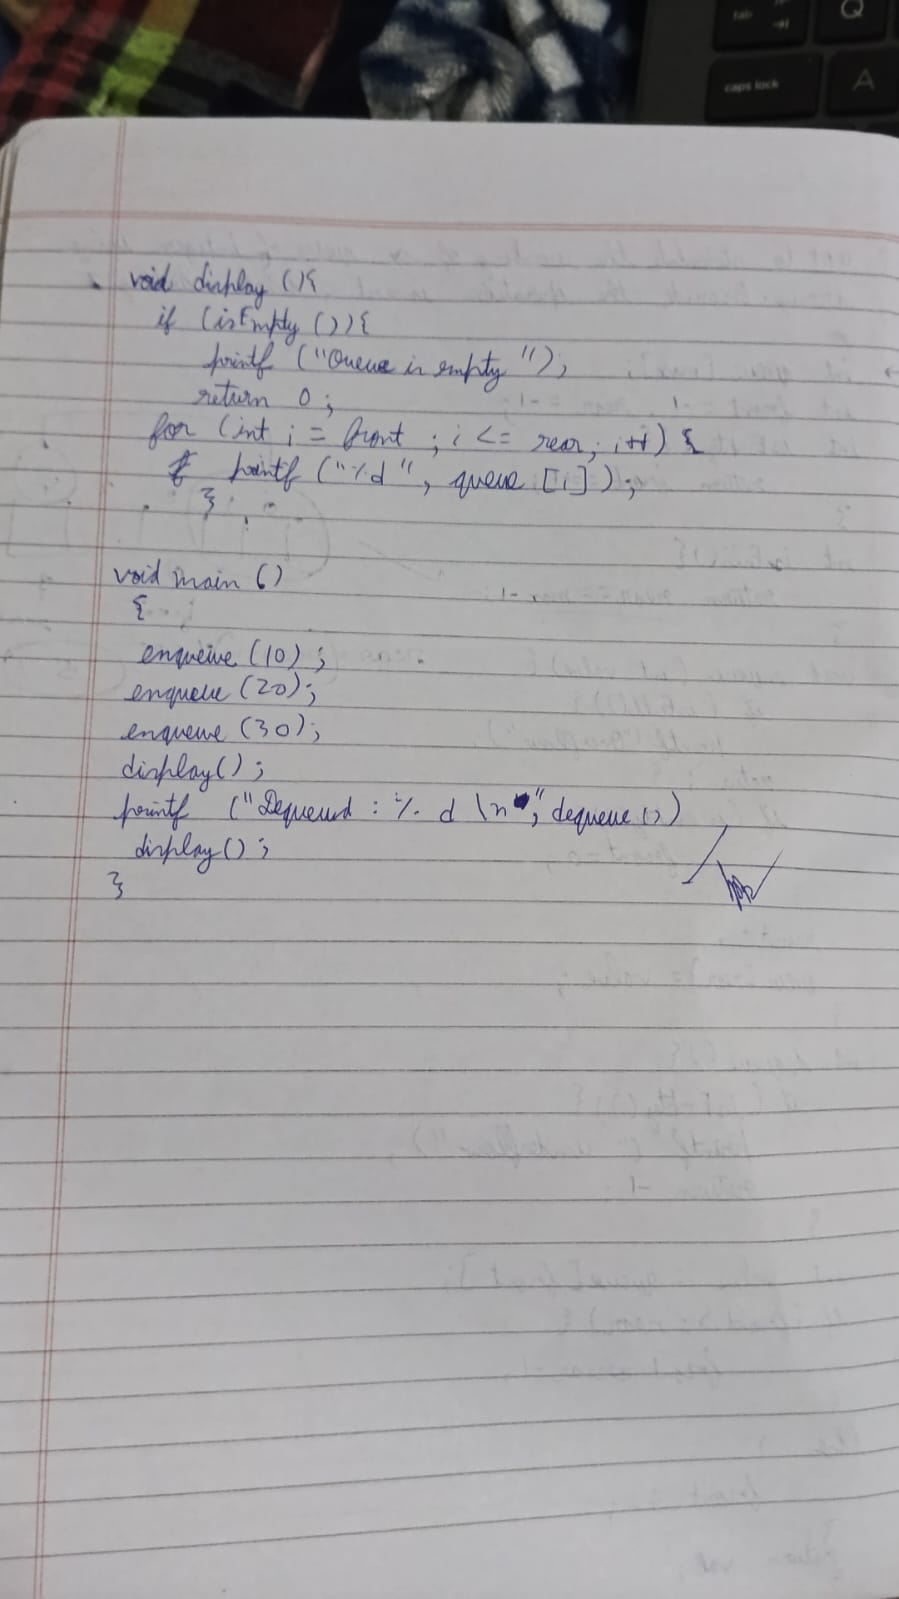 void display (){
if (isEmpty ()){
printf ("Queue is empty");
return 0;
for (int i = front ; i <= rear; i++) {
printf ("%d", queue [i]);
}
void main ()
{
enqueue (10);
enqueue (20);
enqueue (30);
display();
printf ("Dequeued : % d \n", dequeue ())
display();
}
tab
caps lock
Q
A